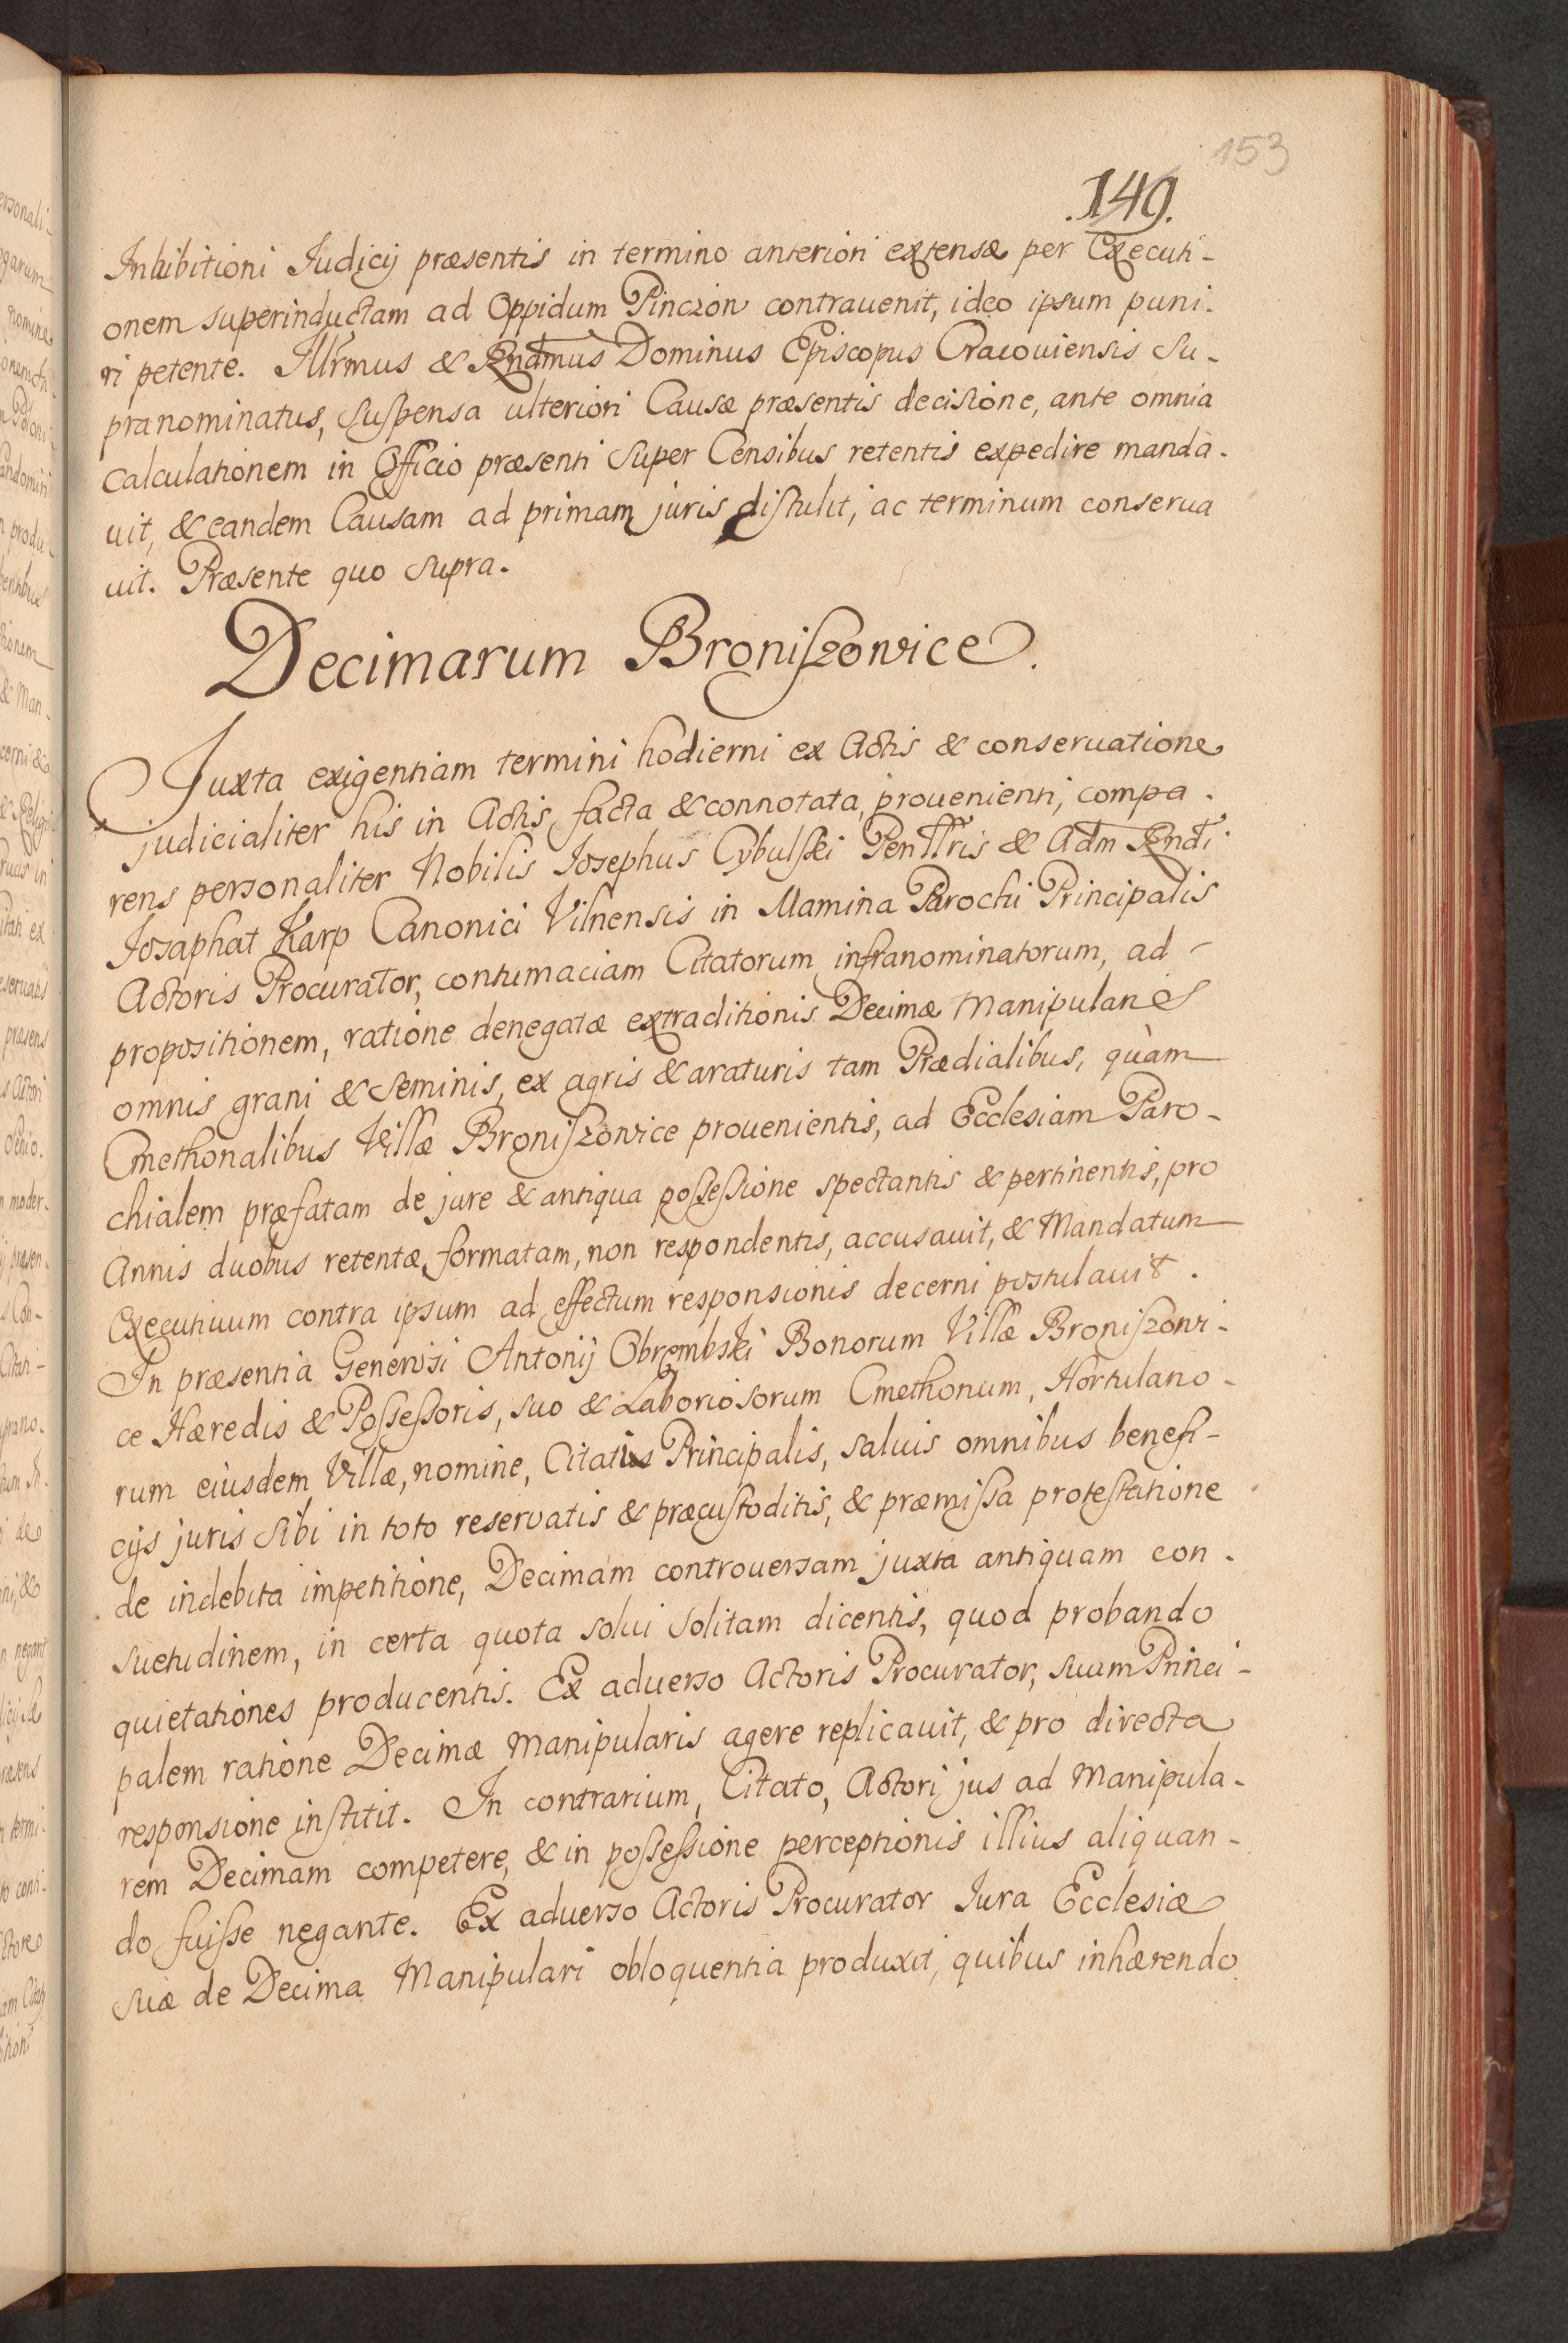 153
.149.
Inhibitioni Iudicij præsentis in termino anteriori extensæ per Executi-
onem superinductam ad Oppidum Pinczòw contrauenit, ideo ipsum puni-
ri petente. Illrmus & Rndmus Dominus Episcopus Cracouiensis su-
pranominatus, suspensa ulteriori Causæ præsentis decisione, ante omnia
calculationem in Officio præsenti super Censibus retentis expedire manda-
uit, & eandem Causam ad primam juris distulit, ac terminum conserua
uit. Præsente quo supra.
Decimarum Broniszowice.
Juxta exigentiam termini hodierni ex Actis & conseruatione
judicialiter his in Actis facta & connotata, prouenienti, compa-
rens personaliter Nobilis Josephus Cybulski Perillris & Adm Rndi
Josaphat Karp Canonici Vilnensis in Mamina Parochi Principalis
Actoris Procurator, contumaciam Citatorum infranominatorum, ad
propositionem, ratione denegatæ extraditionis Decimæ Manipularis
omnis grani & seminis, ex agris & araturis tam Prædialibus, quàm
Cmethonalibus Villæ Broniszowice prouenientis, ad Ecclesiam Paro-
chialem præfatam de jure & antiqua possessione spectantis & pertinentis, pro
Annis duobus retentæ formatam, non respondentis, accusauit, & Mandatum
Executiuum contra ipsum ad effectum responsionis decerni postulauit.
In præsentia Generosi Antonij Obrembski Bonorum Villæ Broniszowi-
ce Hæredis & Possessoris, suo & Laboriosorum Cmethonum, Hortulano-
rum eiusdem Villæ, nomine, Citatis Principalis, saluis omnibus benefi-
cijs juris sibi in toto reseruatis & præcustoditis, & præmissa protestatione
de indebita impetitione, Decimam controuersam juxta antiquam con-
suetudinem, in certa quota solui solitam dicentis, quod probando
quietationes producentis. Ex aduerso Actoris Procurator, suum Princi-
palem ratione Decimæ Manipularis agere replicauit, & pro directa
responsione institit. In contrarium, Citato, Actori jus ad Manipula-
rem Decimam competere, & in possessione perceptionis illius aliquan-
do fuisse negante. Ex aduerso Actoris Procurator Iura Ecclesiæ
suæ de Decima Manipulari obloquentia produxit, quibus inhærendo